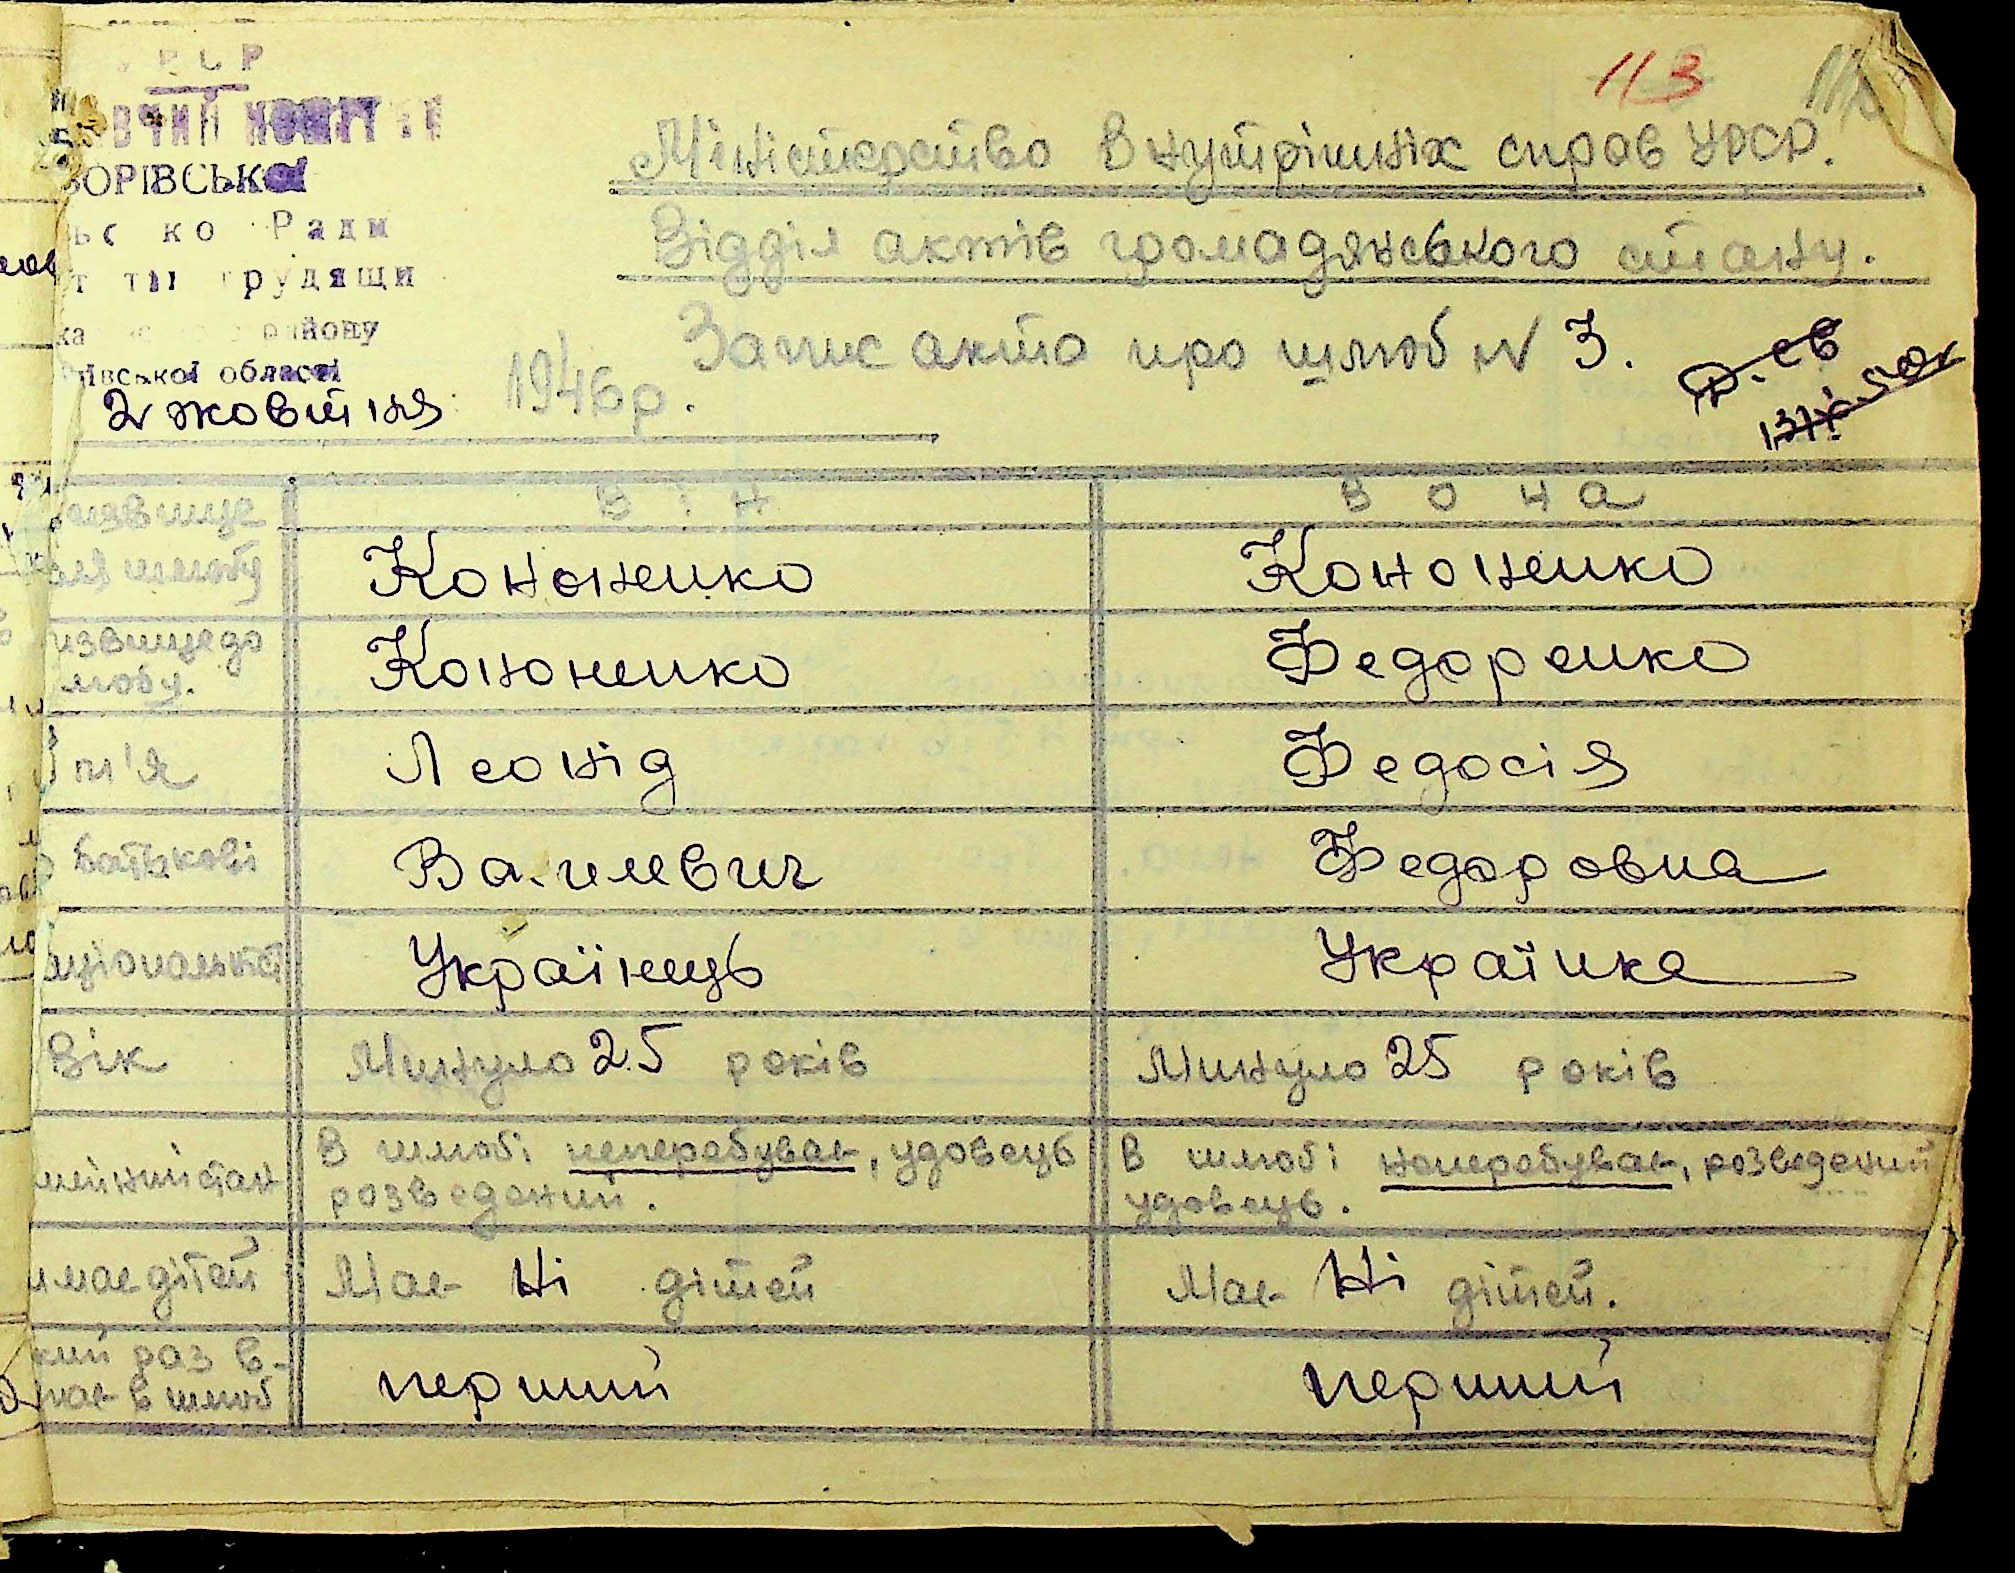 УРСР
ВЧИЙ КОМІТЕТ
ЗОРІВСЬКОЇ
ко Ради
трудящи
району
івської області
2 жовтня 1946 р.
113
Міністерство Внутрішніх справ УРСР.
Відділ актів громадянського стану.
Запис акта про шлюб № 3.
ізвище
шлюбу
він
вона
Кононенко
Кононенко
ізвище до
любу.
Кононенко
Федоренко
ім'я
Леонід
Федосія
батькові
Василевич
Федоровна
аціональність
Українець
Українка
Вік
Минуло 25 років
Минуло 25 років
мейний стан
В шлюбі неперебуває, удовець
розведений.
В шлюбі неперебуває, розведений
удовець.
має дітей
Має Ні дітей
Має Ні дітей.
кий раз в-
пає в шлюб
перший
перший